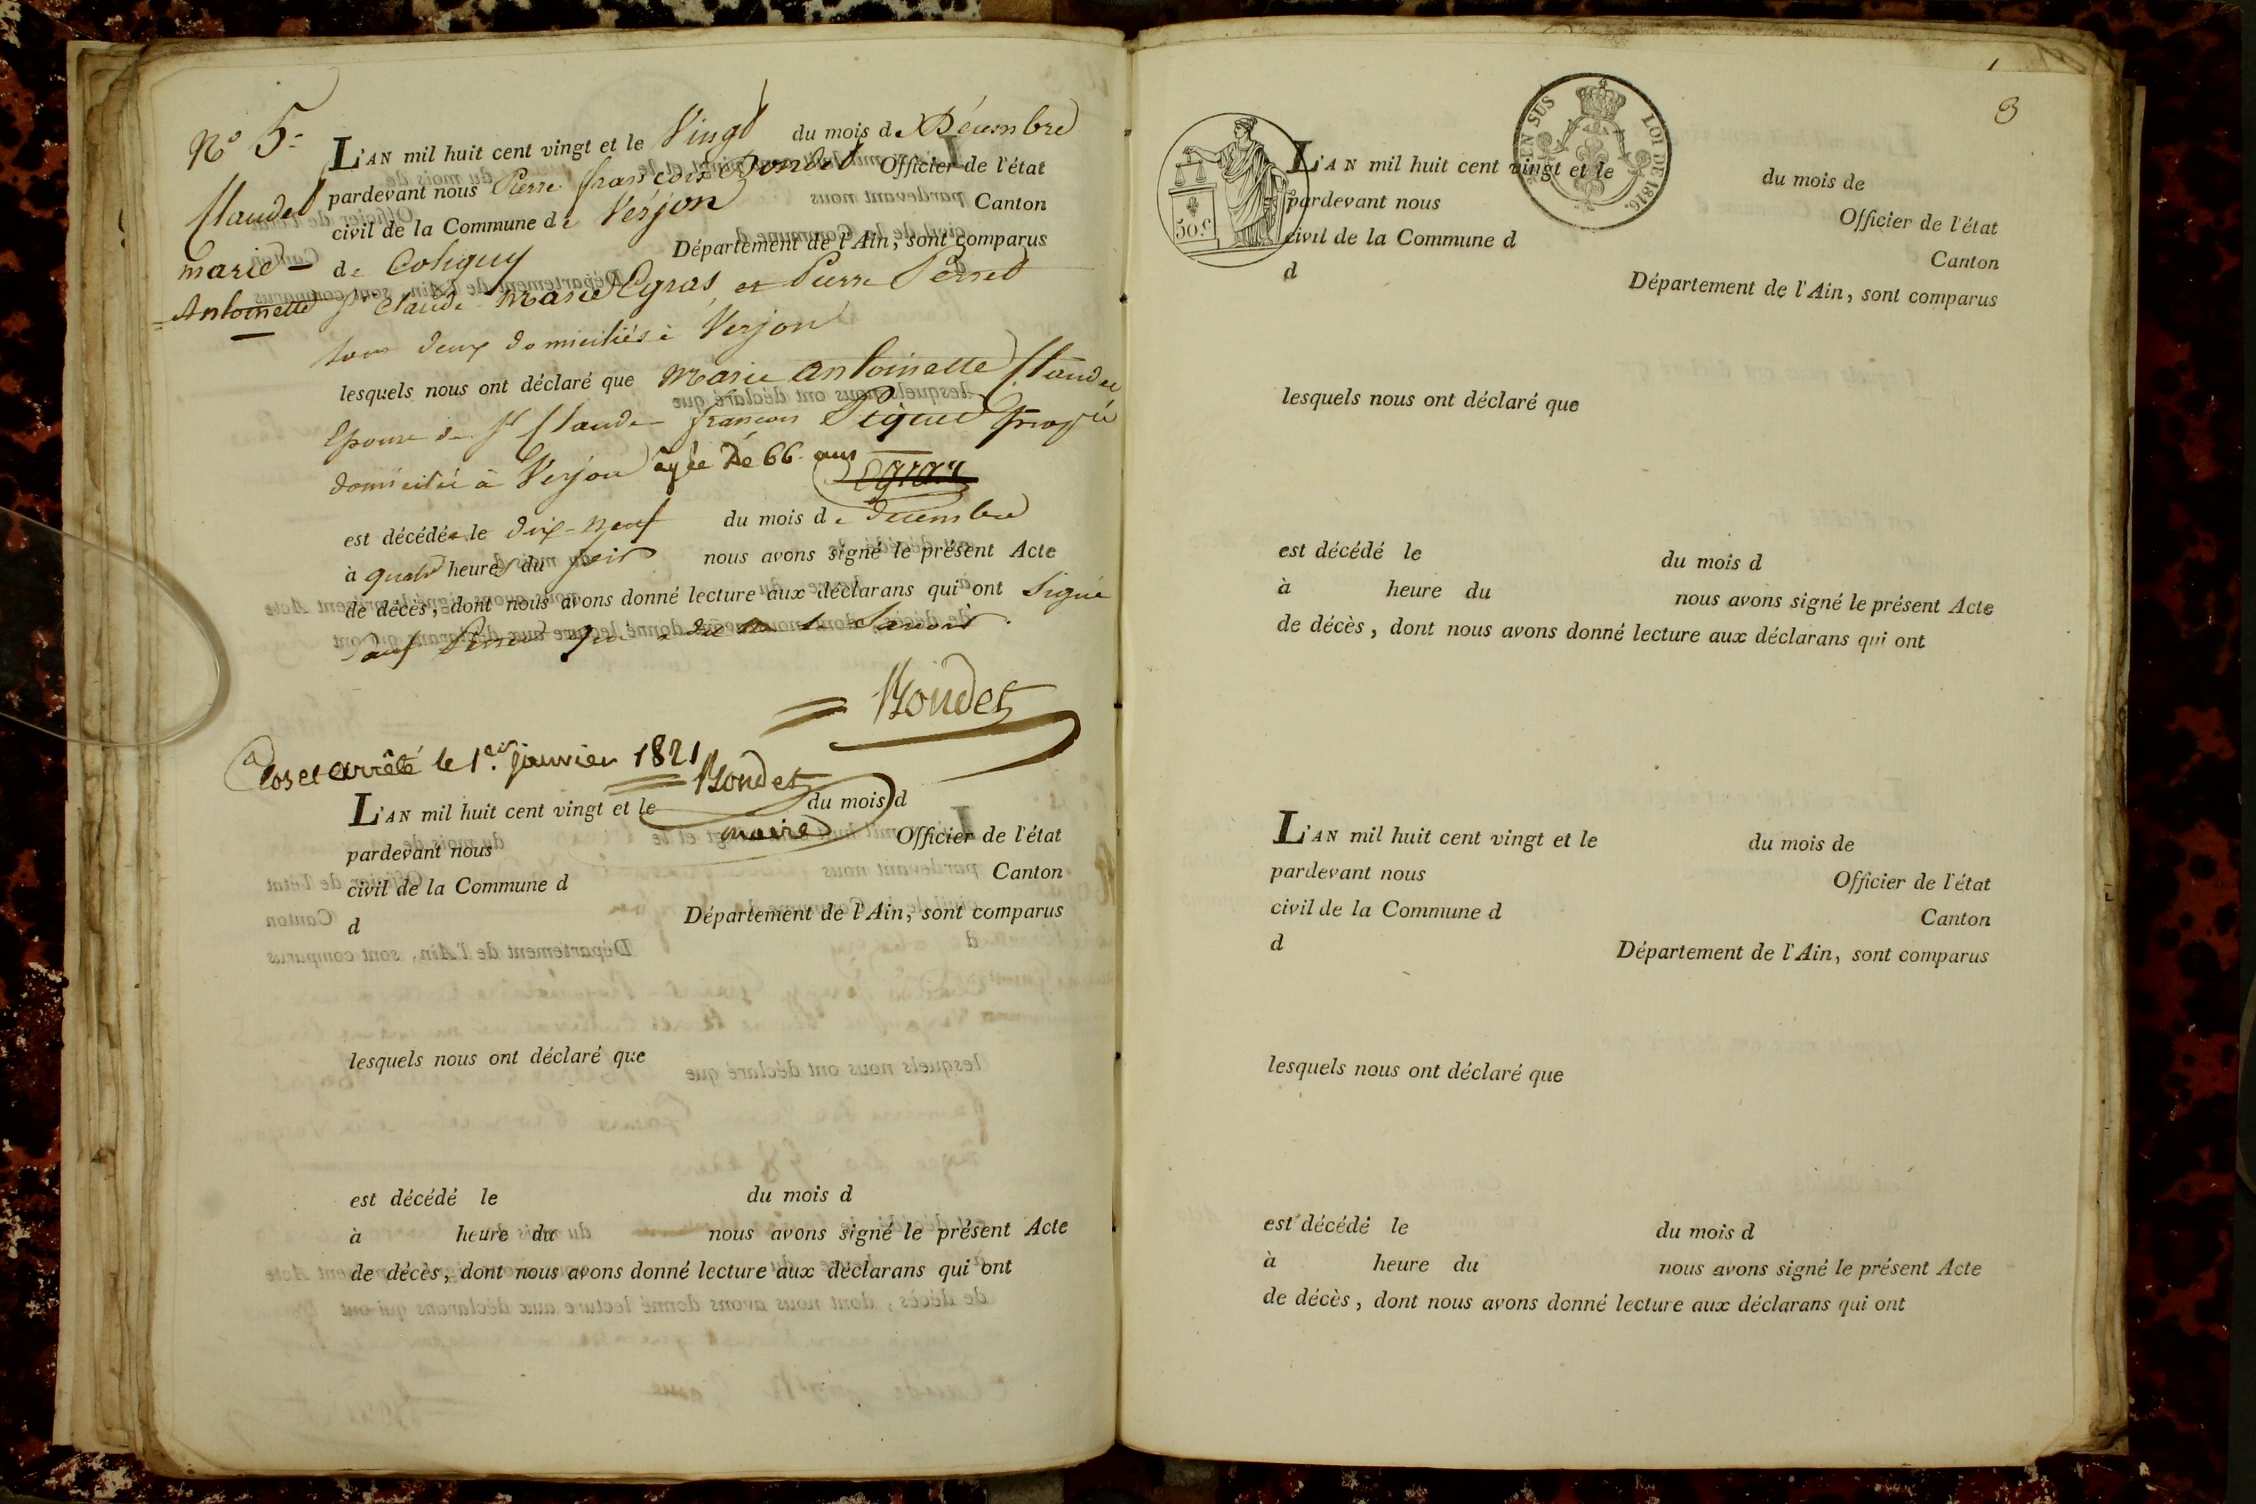 N° 5.
Claudel
marie –
Antoinette
L'AN mil huit cent vingt et le Vingt du mois de Décembre
pardevant nous Pierre françois Bondet Officier de l'état
civil de la Commune de Verjon Canton
de Coligny Département de l'Ain, sont comparus
Sr Claude Marie Egras et Pierre Perret
tous deux domiciliés à Verjon
lesquels nous ont déclaré que Marie Antoinette Claudel
Epouse de Sr Claude françois Piquet
domicilié à Verjon agée De 66 ans
Egras
est décédée le dix-neuf du mois de décembre
à quatre heures du soir nous avons signé le présent Acte
de décès, dont nous avons donné lecture aux déclarans qui ont Signé
Sauf Perret qui a dit ne le Savoir.
Bondet
Clos et arrêté le 1er. janvier 1821
Bondet
maire
L'AN mil huit cent vingt et le du mois d
pardevant nous Officier de l'état
civil de la Commune d Canton
d Département de l'Ain, sont comparus
lesquels nous ont déclaré que
est décédé le du mois d
à heure du nous avons signé le présent Acte
de décès, dont nous avons donné lecture aux déclarans qui ont
3
50 c.
EN SUS
LOI DE 1816.
L'AN mil huit cent vingt et le du mois de
pardevant nous Officier de l'état
civil de la Commune d Canton
d Département de l'Ain, sont comparus
lesquels nous ont déclaré que
est décédé le du mois d
à heure du nous avons signé le présent Acte
de décès, dont nous avons donné lecture aux déclarans qui ont
L'AN mil huit cent vingt et le du mois de
pardevant nous Officier de l'état
civil de la Commune d Canton
d Département de l'Ain, sont comparus
lesquels nous ont déclaré que
est décédé le du mois d
à heure du nous avons signé le présent Acte
de décès, dont nous avons donné lecture aux déclarans qui ont